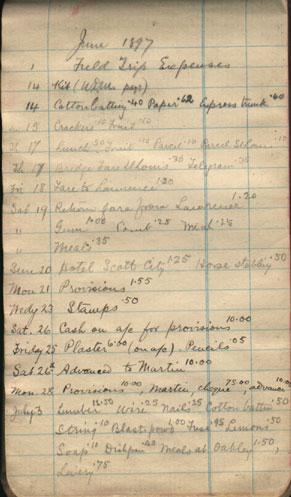 June 1897
1 Field Trip Expenses
14 Kit
14 Cotton Batting .40 Paper .62 Express trunk .60
15 Crackers .10 Fruit .10
Th 17 Lunch .50 Fruit .10
Th 17 Bridge Fare St Louis Telegram
Fri 18 Fare to Lawrence 1.20
Sat 19 Return fare from Lawrence 1.20
" Gum 1.00 Comb .25 Meal .25
" Meal .35
Sun. 20 Hotel Scott City 1.25 Horse Stabling .50
Mon 21 Provisions 1.55
Wedy 23 Stamps .50
Sat. 26 Cash on a/c for provisions 10.00
Friday 25 Plaster 6.00 (on a/c). Pencils .05
Sat 26th Advanced to Martin 10.00
Mon. 28 Provisions 10.00 Martin, cheque 75.00, advance 10.00
July 3 Lumber 12.50 Wire Nails .25 Cotton batten .50
String .10 Blast. powd. 1.00 Fuse .95 Lemons .50
Soap .10 Dishpan .40 Meals at Oakley 1.50,
Livery .75